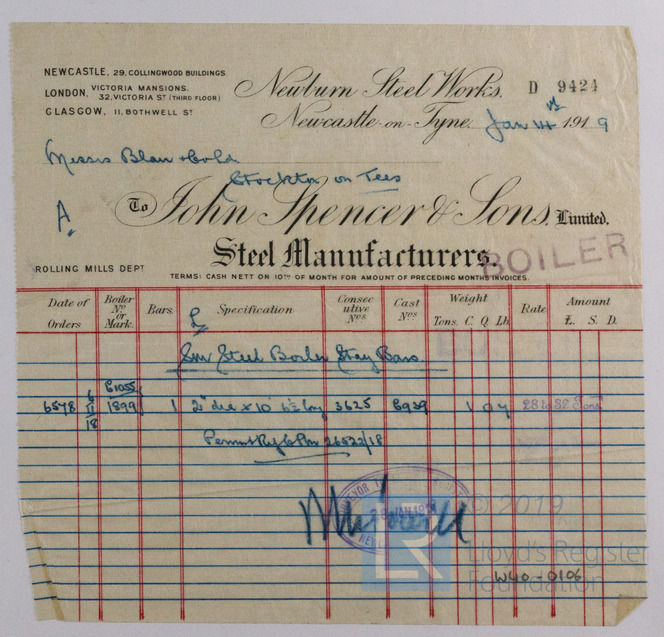 NEWCASTLE, 29, COLLINGWOOD BUILDINGS.
LONDON, VICTORIA MANSIONS.
32, VICTORIA ST (THIRD FLOOR)
GLASGOW, 11, BOTHWELL ST
Newburn Steel Works.
D 9424
Newcastle-on-Tyne.
Jan 1919
Messrs Blair & Co Ld.
Stockton on Tees
A.
To John Spencer & Sons. Limited.
Steel Manufacturers.
BOILER
ROLLING MILLS DEPT
TERMS: CASH NETT ON 10TH OF MONTH FOR AMOUNT OF PRECEDING MONTHS INVOICES.
Date of Orders
Boiler No or Mark.
Bars.
Specification
Consecutive Nos
Cast Nos
Weight
Tons. C. Q. Lb.
Rate
Amount
£. S. D.
Steel Boiler Stay Bars.
6578 6/11/18 1899 1 2" dia x 10' long 3625 6939 1 0 4
26522/18
© 2019
Lloyd's Register
Foundation
LR
W40-0106